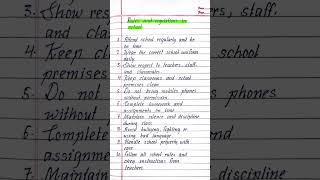 Rules and regulations in
school
1. Attend school regularly and be
on time.
2. Wear the correct school uniform
daily.
3. Show respect to teachers, staff
and classmates.
4. Keep classrooms and school
premises clean.
5. Do not bring mobiles phones
without permission.
6. Complete homework and
assignments on time.
7. Maintain silence and discipline
during class.
8. Avoid bullying, fighting or
using bad language.
9. Handle school property with
care.
10. Follow all school rules and
obey instructions from
teachers.
3. Show res
and clas
4. Keep c
premises
5. Do not
without
6. Complete
assignme
7. Maintain
ers, staff
school
s phones
.
and
e.
discipline